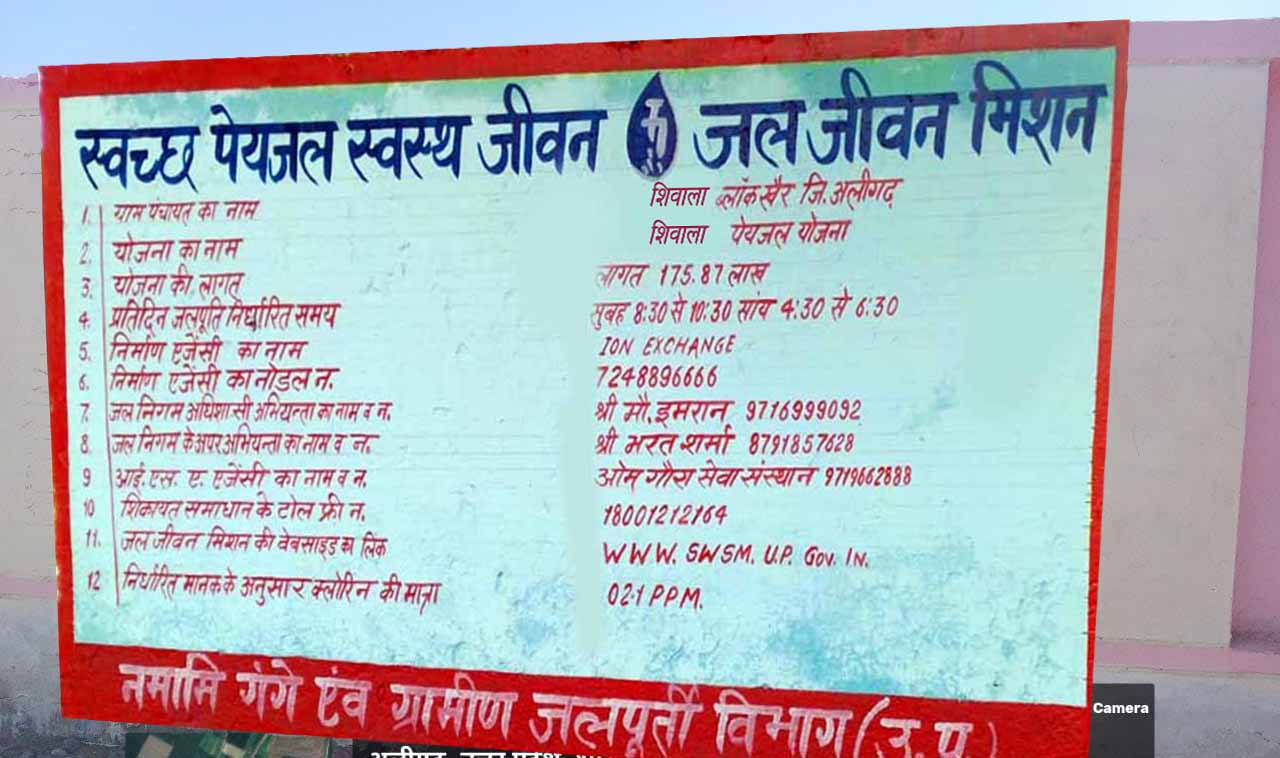 स्वच्छ पेयजल स्वस्थ जीवन जल जीवन मिशन
1. ग्राम पंचायत का नाम शिवाला ब्लॉकखैर जि.अलीगढ़
2. योजना का नाम शिवाला पेयजल योजना
3. योजना की लागत लागत 175.87 लाख
4. प्रतिदिन जलपूर्ति निर्धारित समय सुबह 8:30 से 10:30 सांय 4:30 से 6:30
5. निर्माण एजेंसी का नाम ION EXCHANGE
6. निर्माण एजेंसी का नोडल न. 7248896666
7. जल निगम अधिशासी अभियन्ता का नाम व न. श्री मौ. इमरान 9716999092
8. जल निगम के अपर अभियन्ता का नाम व न. श्री भरत शर्मा 8791857628
9 आई. एस. ए. एजेंसी का नाम व न. ओम गौरा सेवा संस्थान 9719662888
10 शिकायत समाधान के टोल फ्री न. 18001212164
11. जल जीवन मिशन की वेबसाइड का लिंक WWW. SWSM. U.P. Gov. IN.
12 निर्धारित मानक के अनुसार क्लोरिन की मात्रा 02.1 PPM.
नमामि गंगे एंव ग्रामीण जलपूर्ती विभाग (उ.प्र.)
Camera